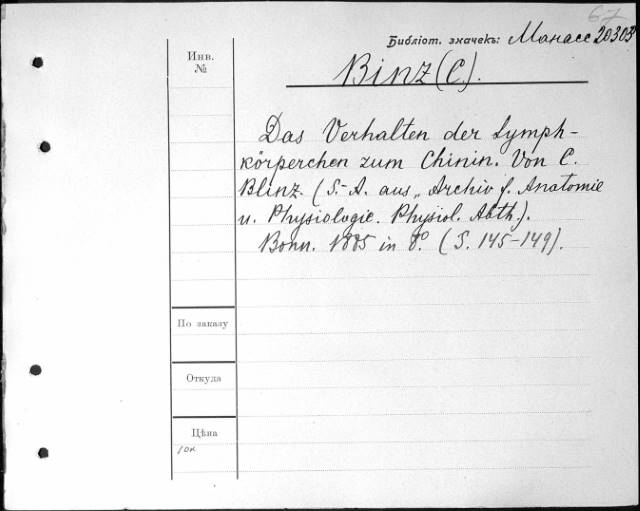 67
Библіот. значекъ: Манасс 20303
Инв.
№
Binz (C.).
Das Verhalten der Lymph-
körperchen zum Chinin. Von C.
Blinz. (S.-A. aus „Archiv f. Anatomie
u. Physiologie. Physiol. Abth.).
Bonn. 1885 in 8º. (S. 145-149).
По заказу
Откуда
Цѣна
10к